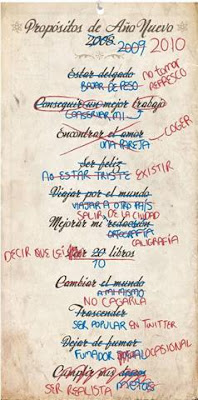 Propósitos de Año Nuevo
2008 2009 2010
Estar delgado no tomar
BAJAR DE PESO REFRESCO
Conseguir un mejor trabajo
CONSERVAR MI
Encontrar el amor COGER
UNA PAREJA
Ser feliz
NO ESTAR TRISTE EXISTIR
Viajar por el mundo
VIAJAR A OTRO PAÍS
SALIR DE LA CIUDAD
Mejorar mi redacción
ORTOGRAFÍA
CALIGRAFÍA
DECIR QUE LEÍ Leer 20 libros
10
Cambiar el mundo
A MI MISMO
NO CAGARLA
Trascender
SER POPULAR EN TWITTER
Dejar de fumar
FUMADOR OCASIONAL
Cumplir mis
SER REALISTA